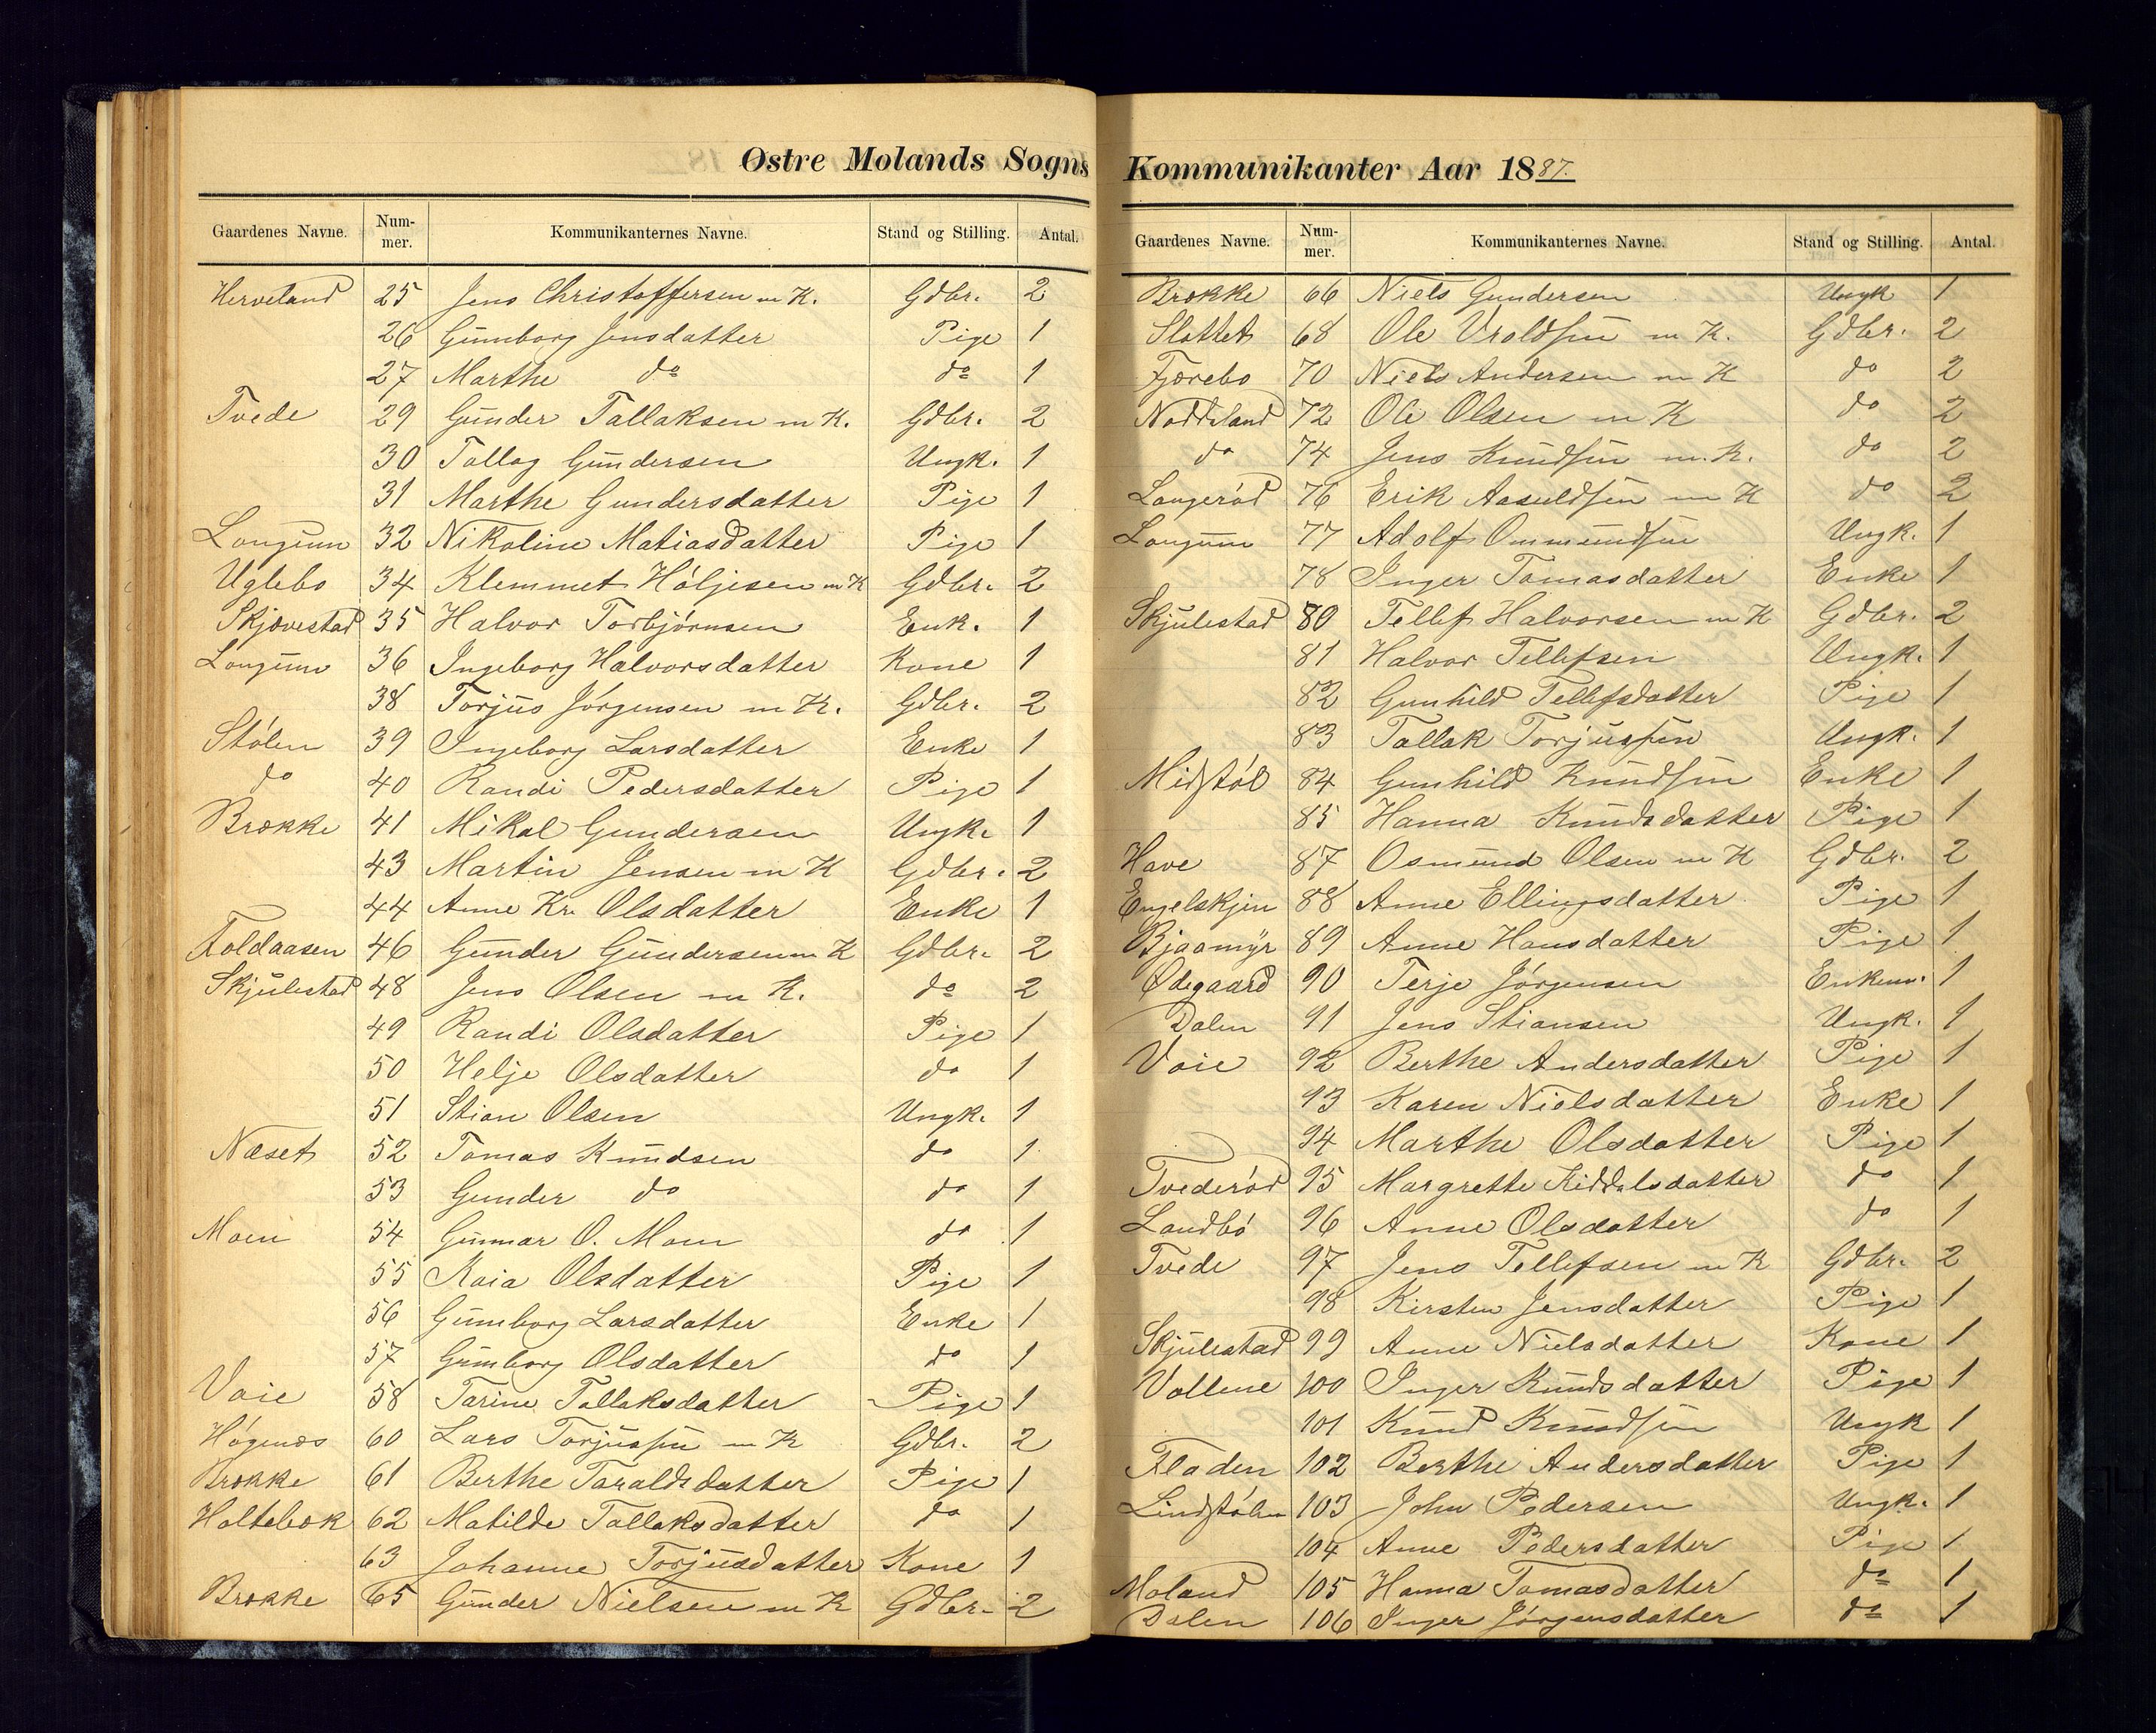 Østre Molands Sogns
Gaardenes Navne. Num-mer. Kommunikanternes Navne. Stand og Stilling. Antal.
Herveland 25 Jens Christoffersen m K. Gdbr. 2
26 Gunnborg Jensdatter Pige 1
27 Marthe do do 1
Tvede 29 Gunder Tallaksen m K. Gdbr. 2
30 Tallag Gundersen Ungk. 1
31 Marthe Gundersdatter Pige 1
Longum 32 Nikoline Matiasdatter Pige 1
Uglebo 34 Klemmet Höljesen m K Gdbr. 2
Skjævestad 35 Halvor Torbjörnsen Enk. 1
Longum 36 Ingeborg Halvorsdatter Kone 1
38 Torjus Jörgensen m K. Gdbr. 2
Stölen 39 Ingeborg Larsdatter Enke 1
do 40 Randi Pedersdatter Pige 1
Brække 41 Mikal Gundersen Ungk. 1
43 Martin Jensen m K Gdbr. 2
44 Anne Kr. Olsdatter Enke 1
Foldaasen 46 Gunder Gundersen m K Gdbr. 2
Skjulestad 48 Jens Olsen m K. do 2
49 Randi Olsdatter Pige 1
50 Helje Olsdatter do 1
51 Stian Olsen Ungk. 1
Næset 52 Tomas Knudsen do 1
53 Gunder do do 1
Moen 54 Gunnar O. Moen do 1
55 Maia Olsdatter Pige 1
56 Gunnborg Larsdatter Enke 1
57 Gunnborg Olsdatter do 1
Voie 58 Tarine Tallaksdatter Pige 1
Högenæs 60 Lars Torjussen m K Gdbr. 2
Brække 61 Berthe Taraldsdatter Pige 1
Holtebæk 62 Matilde Tallaksdatter do 1
63 Johanne Torjusdatter Kone 1
Brække 65 Gunder Nielsen m K Gdbr. 2
Kommunikanter Aar 1887.
Gaardenes Navne. Num-mer. Kommunikanternes Navne. Stand og Stilling. Antal.
Brække 66 Niels Gundersen Ungk 1
Slottet 68 Ole Vroldsen m K. Gdbr. 2
Fjærebo 70 Niels Andersen m K do 2
Noddeland 72 Ole Olsen m K do 2
do 74 Jens Knudsen m. K. do 2
Langeröd 76 Erik Aasuldsen m K do 2
Longum 77 Adolf Ommundsen Ungk. 1
78 Inger Tomasdatter Enke 1
Skjulestad 80 Tellef Halvorsen m K Gdbr. 2
81 Halvor Tellefsen Ungk. 1
82 Gunhild Tellefsdatter Pige 1
83 Tallak Torjussen Ungk. 1
Midstöl 84 Gunhild Knudsen Enke 1
85 Hanna Knudsdatter Pige 1
Have 87 Osmund Olsen m K Gdbr. 2
Engelskjen 88 Anne Ellingsdatter Pige 1
Bjaamyr 89 Anne Hansdatter Pige 1
Ødegaard 90 Terje Jörgensen Enkem. 1
Dalen 91 Jens Stiansen Ungk. 1
Voie 92 Berthe Andersdatter Pige 1
93 Karen Nielsdatter Enke 1
94 Marthe Olsdatter Pige 1
Tvederöd 95 Margrethe Kiddelsdatter do 1
Landbö 96 Anne Olsdatter do 1
Tvede 97 Jens Tellefsen m K Gdbr. 2
98 Kirsten Jensdatter Pige 1
Skjulestad 99 Anne Nielsdatter Kone 1
Vollene 100 Inger Knudsdatter Pige 1
101 Knud Knudsen Ungk 1
Fladen 102 Berthe Andersdatter Pige 1
Lindstölen 103 John Pedersen Ungk. 1
104 Anne Pedersdatter Pige 1
Moland 105 Hanna Tomasdatter do 1
Dalen 106 Inger Jörgensdatter do 1